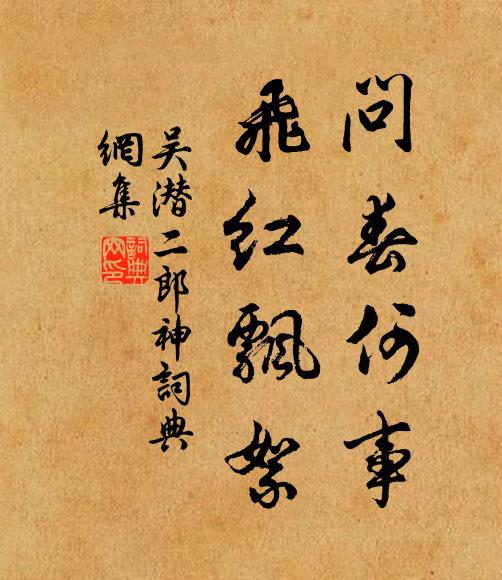 问春何事
飛紅飄絮
吴潜二郎神詞典
網集
詞典
网印